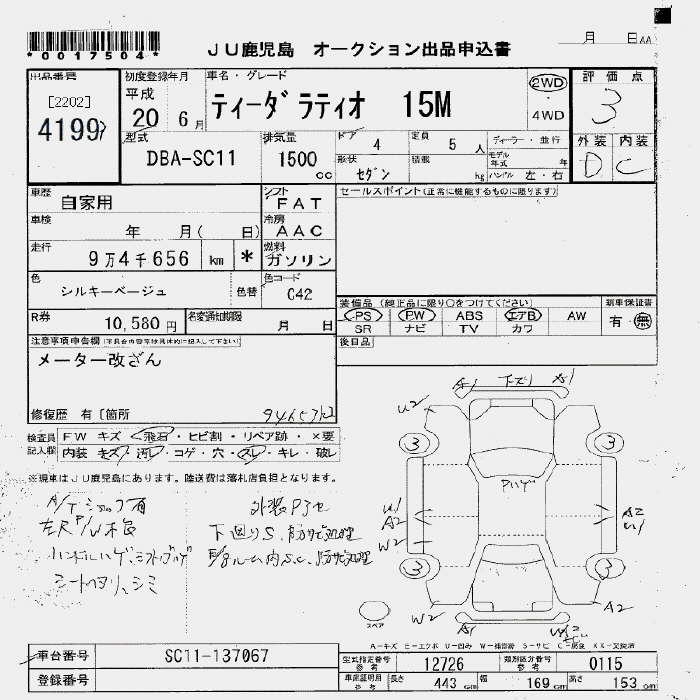 *0017504*
JU鹿児島 オークション出品申込書
月 日 AA
出品番号
[2202]
4199
初度登録年月
平成
20 6月
車名・グレード
ティーダラティオ 15M
2WD
・
4WD
評価点
3
外装 内装
D C
型式
DBA-SC11
排気量
1500
cc
ドア 4
形状 セダン
定員 5 人
積載 kg
ディーラー・並行
モデル年式 年
ハンドル 左・右
車歴 自家用
シフト FAT
車検 年 月( 日)
冷房 AAC
走行 9万4千656 km *
燃料 ガソリン
色 シルキーベージュ 色替
色コード C42
R券 10,580円
名変通知期限 月 日
セールスポイント(正常に機能するものに限ります)
装備品(純正品に限り○をつけてください)
PS PW ABS エアB AW
SR ナビ TV カワ
新車保証書
有・無
後日品
注意事項申告欄
メーター改ざん
修復歴 有〔箇所
94657km
検査員記入欄
FW キズ・飛石・ヒビ割・リペア跡・×要
内装 キズ・汚レ・コゲ・穴・スレ・キレ・破レ
※現車はJU鹿児島にあります。陸送費は落札店負担となります。
A/Tショック有
外装P7セ
下廻りS、防サビ処理
シートヘタリ、シミ
A1 下スリ A1
U2
3 3
Pハゲ
U1
A2
A2
U1
W2
3 3
W2 A1 A2
スペア
A-キズ E-エクボ U-凹み W-補修跡 S-サビ C-腐食 XX-交換済
車台番号 SC11-137067
登録番号
型式指定番号 参考 12726
類別区分番号 参考 0115
車庫証明用 参考 長さ 443 cm 幅 169 cm 高さ 153 cm